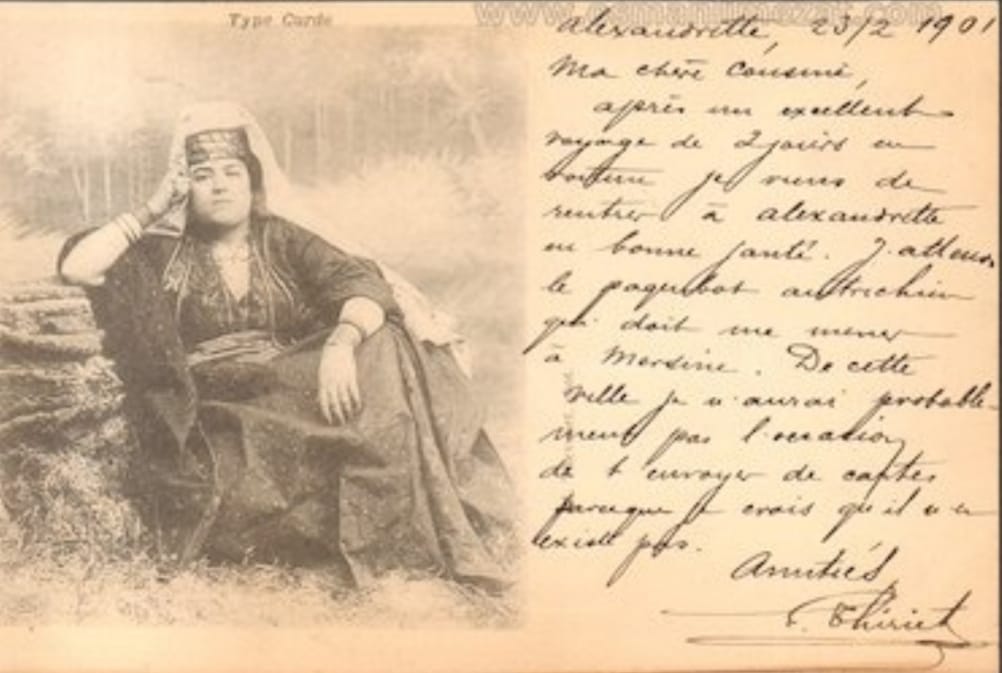 Type Curde
www.osmanlimezat.com
Alexandrette, 23/2 1901
Ma chère Cousine,
après un excellent
voyage de 2 jours en
voiture je viens de
rentrer à Alexandrette
en bonne santé. J'attends
le paquebot autrichien
qui doit me mener
à Mersine. De cette
ville je n'aurai probable-
ment pas l'occasion
de t'envoyer de cartes
parceque je crois qu'il n'en
existe pas.
Amitiés
Thiriet